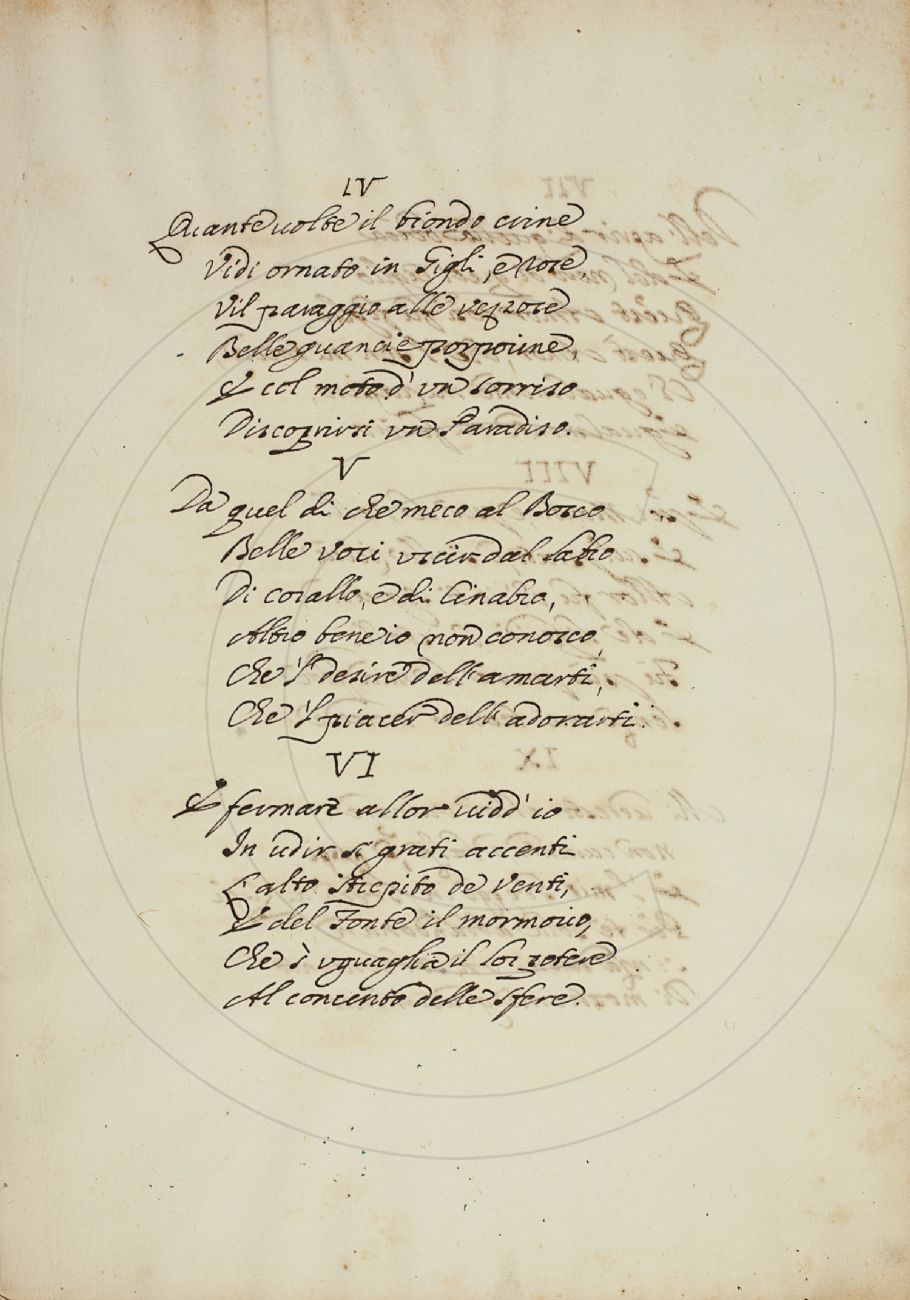 IV
Quante uolte il biondo crine
Vidi ornato in Gigli, e rose,
Vil paraggio alle vezzose
Belle guancie porporine,
E col moto d'un sorriso
Discoprirsi un Paradiso.
V
Da quel di che meco al Bosco
Belle voci uscir dal labro
Di corallo, e di Cinabro,
Altro bene io non conosco,
Che 'l desire dell'amarti,
Che 'l piacer dell'adorarti.
VI
E fermare allor uidd'io
In udir si grati accenti
L'alto strepito de Venti,
E del Fonte il mormorio,
Che s'uguaglia il lor potere
Al concento delle sfere.